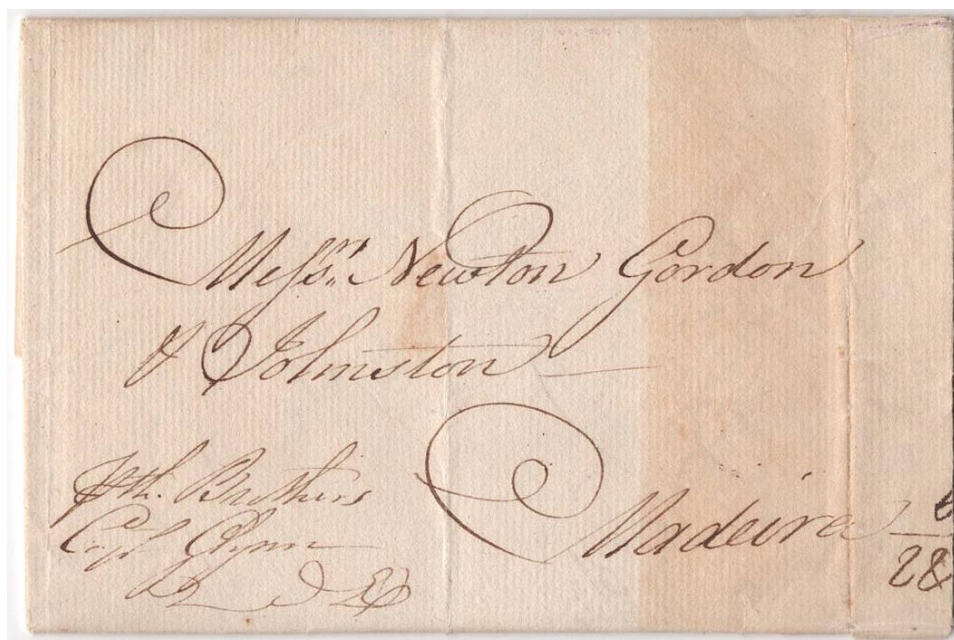 Messrs. Newton Gordon
& Johnston
Madeira
pth. Brothers
Capt
28